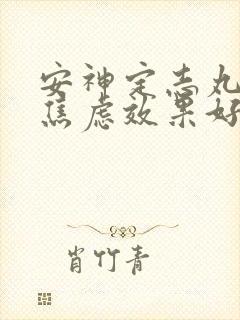 安神定志丸
焦虑效果好
肖竹青